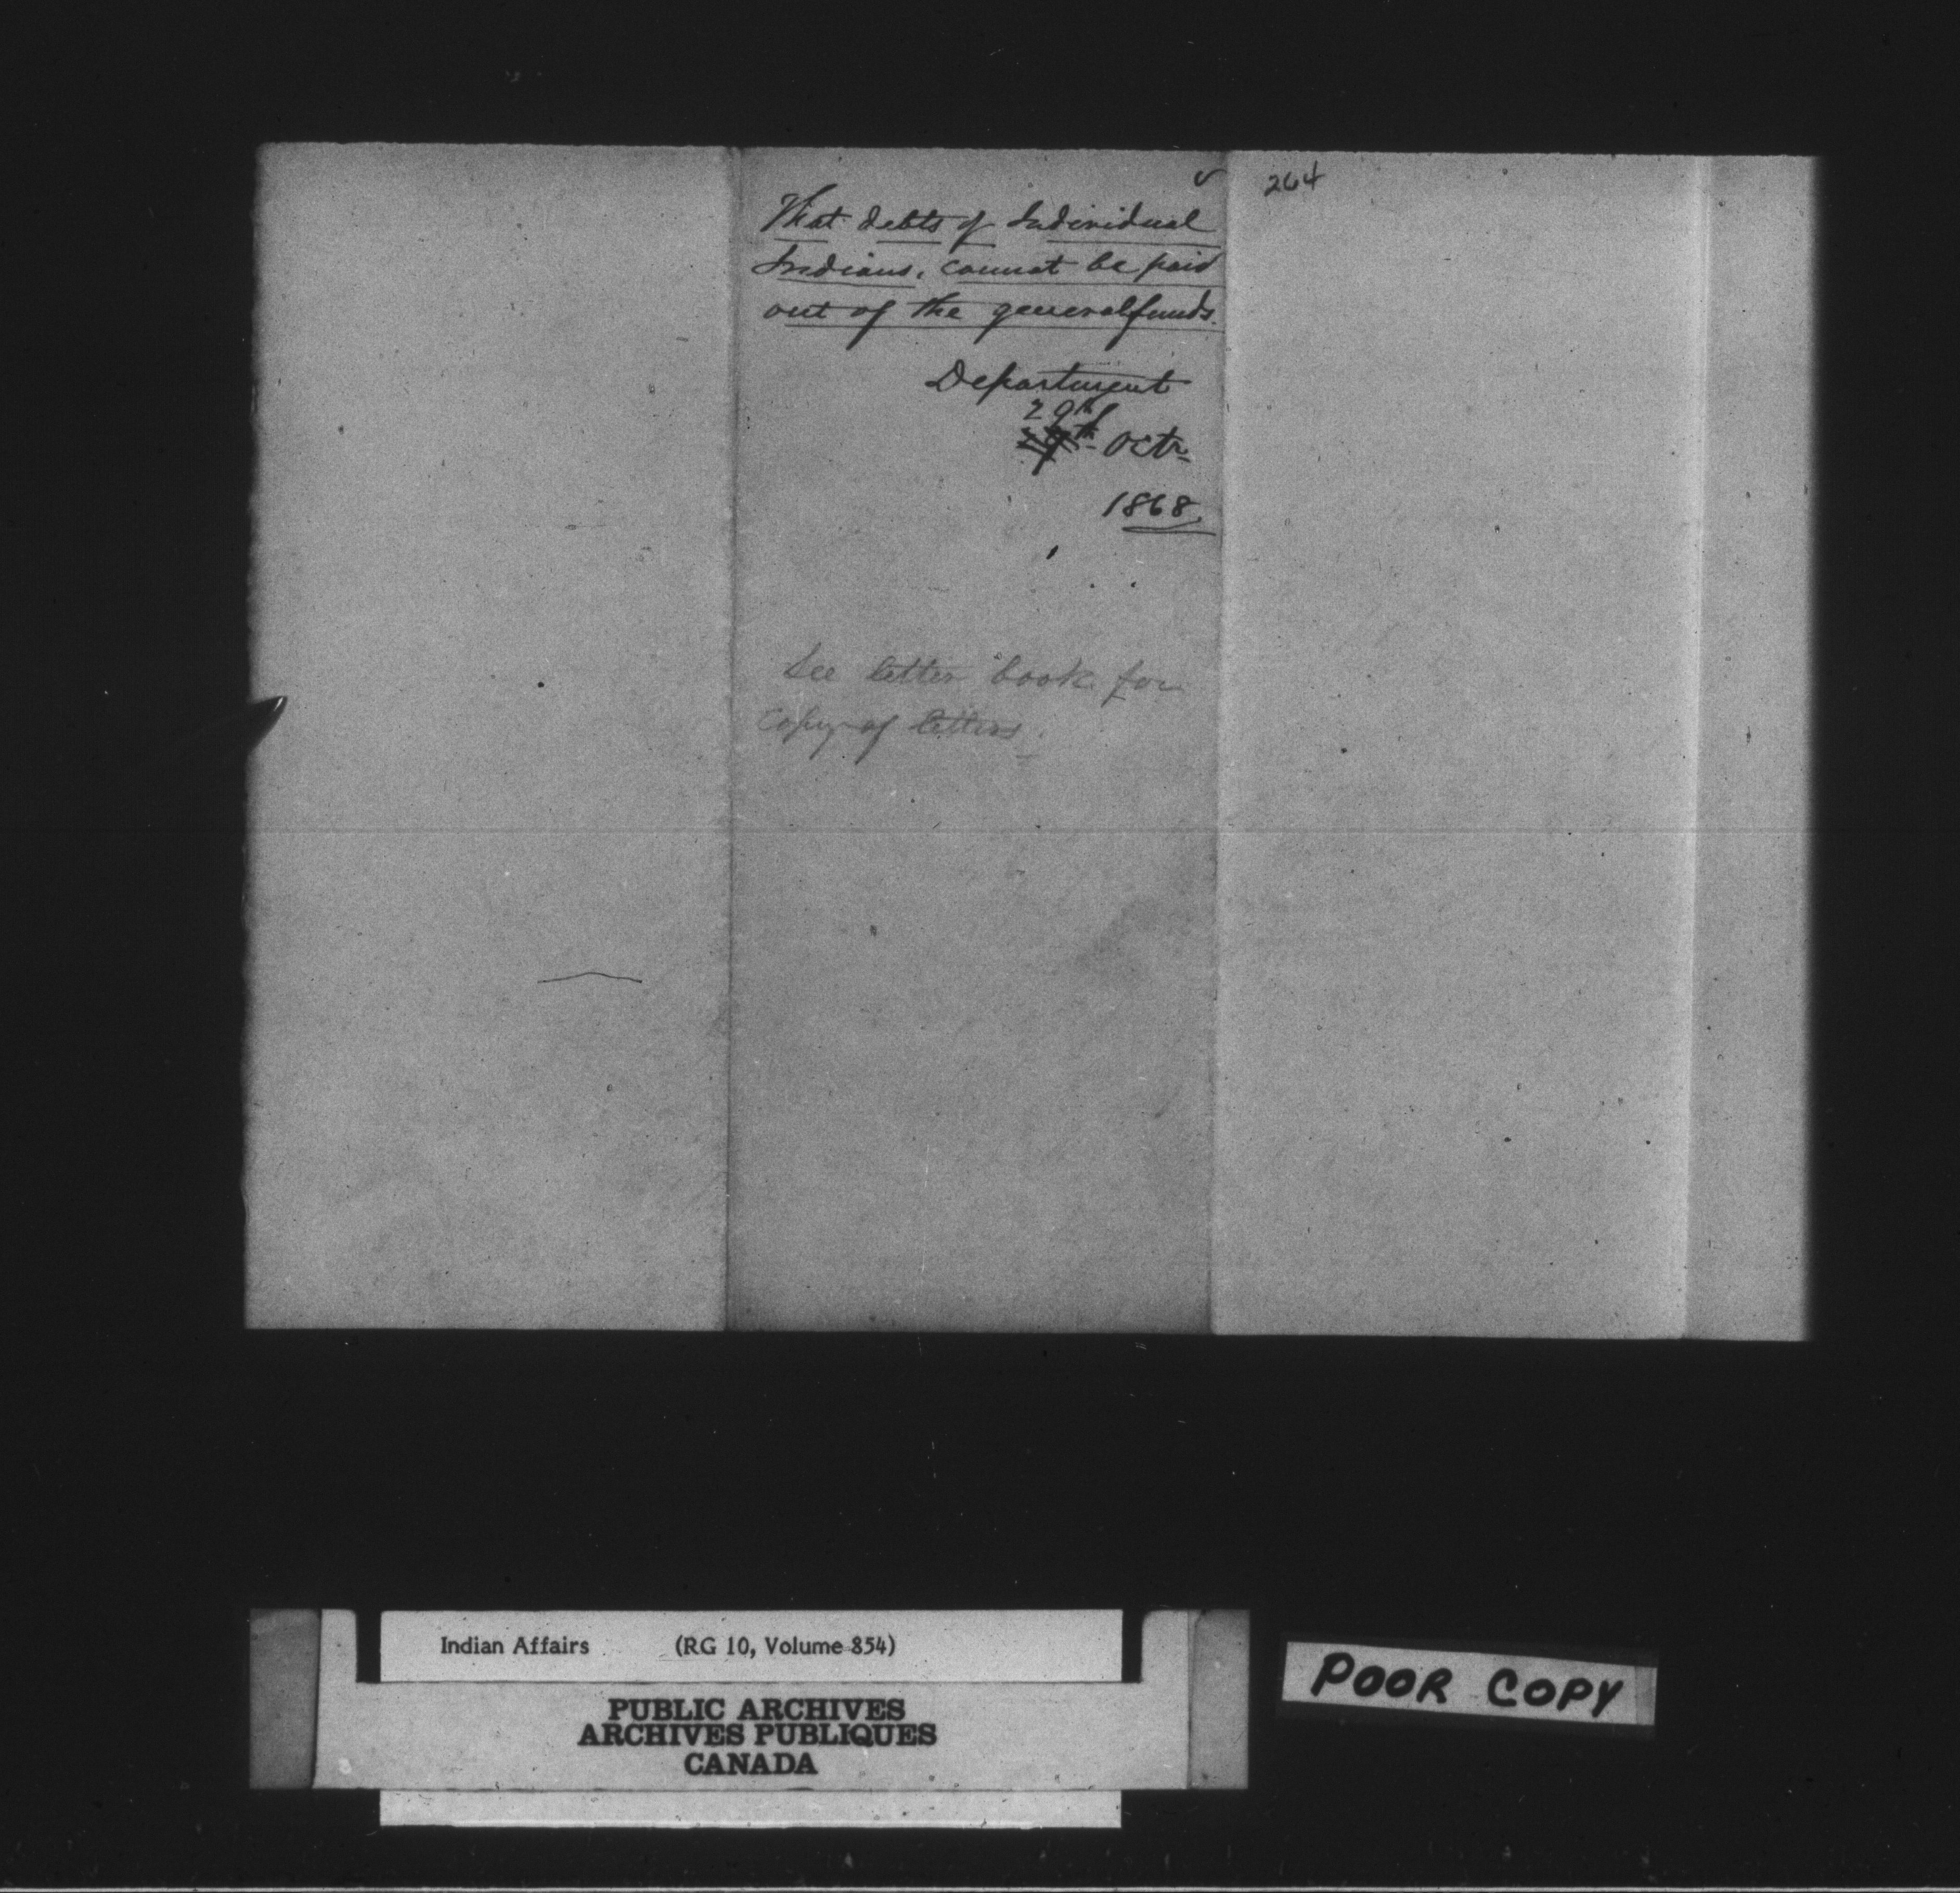 264
That debts of Individual
Indians, cannot be paid
out of the general funds.
Department
29th
Octr.
1868.
See letter book for
copy of letters.
Indian Affairs (RG 10, Volume 854)
PUBLIC ARCHIVES
ARCHIVES PUBLIQUES
CANADA
POOR COPY